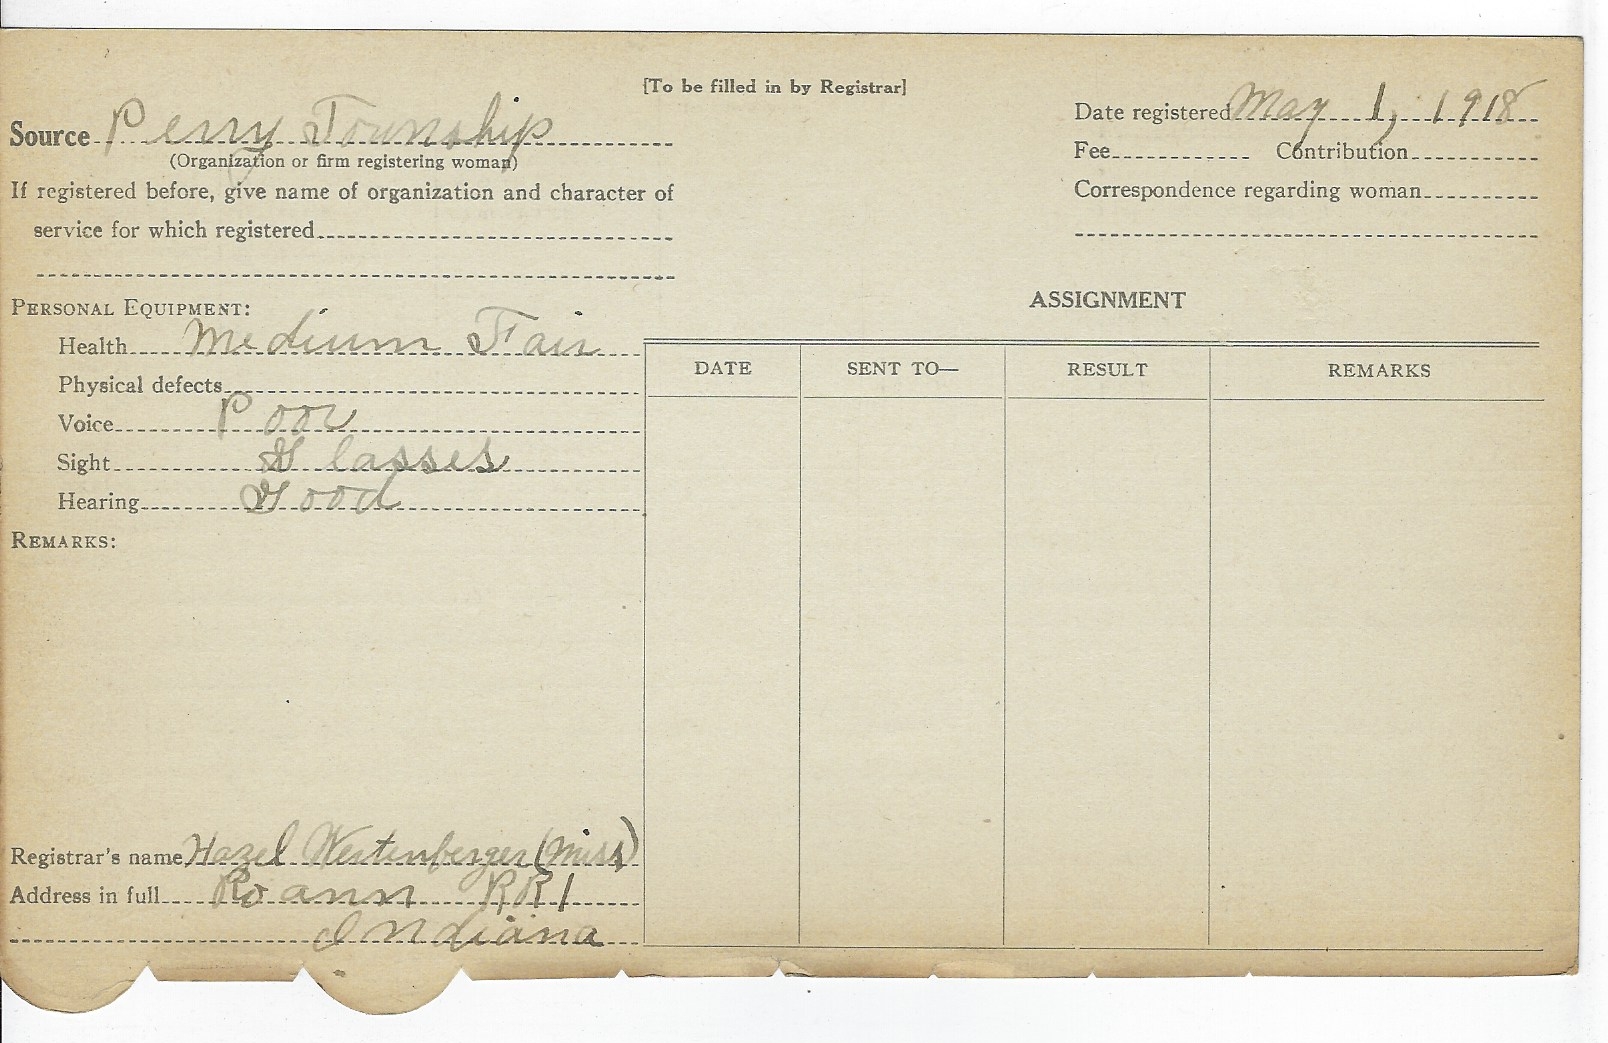 [To be filled in by Registrar]
Source Perry Township
(Organization or firm registering woman)
If registered before, give name of organization and character of
service for which registered
Date registered May 1, 1918
Fee Contribution
Correspondence regarding woman
PERSONAL EQUIPMENT:
Health Medium Fair
Physical defects
Voice Poor
Sight Glasses
Hearing Good
REMARKS:
ASSIGNMENT
DATE SENT TO— RESULT REMARKS
Registrar's name Hazel Westenberger (Miss)
Address in full Roann RR1
Indiana